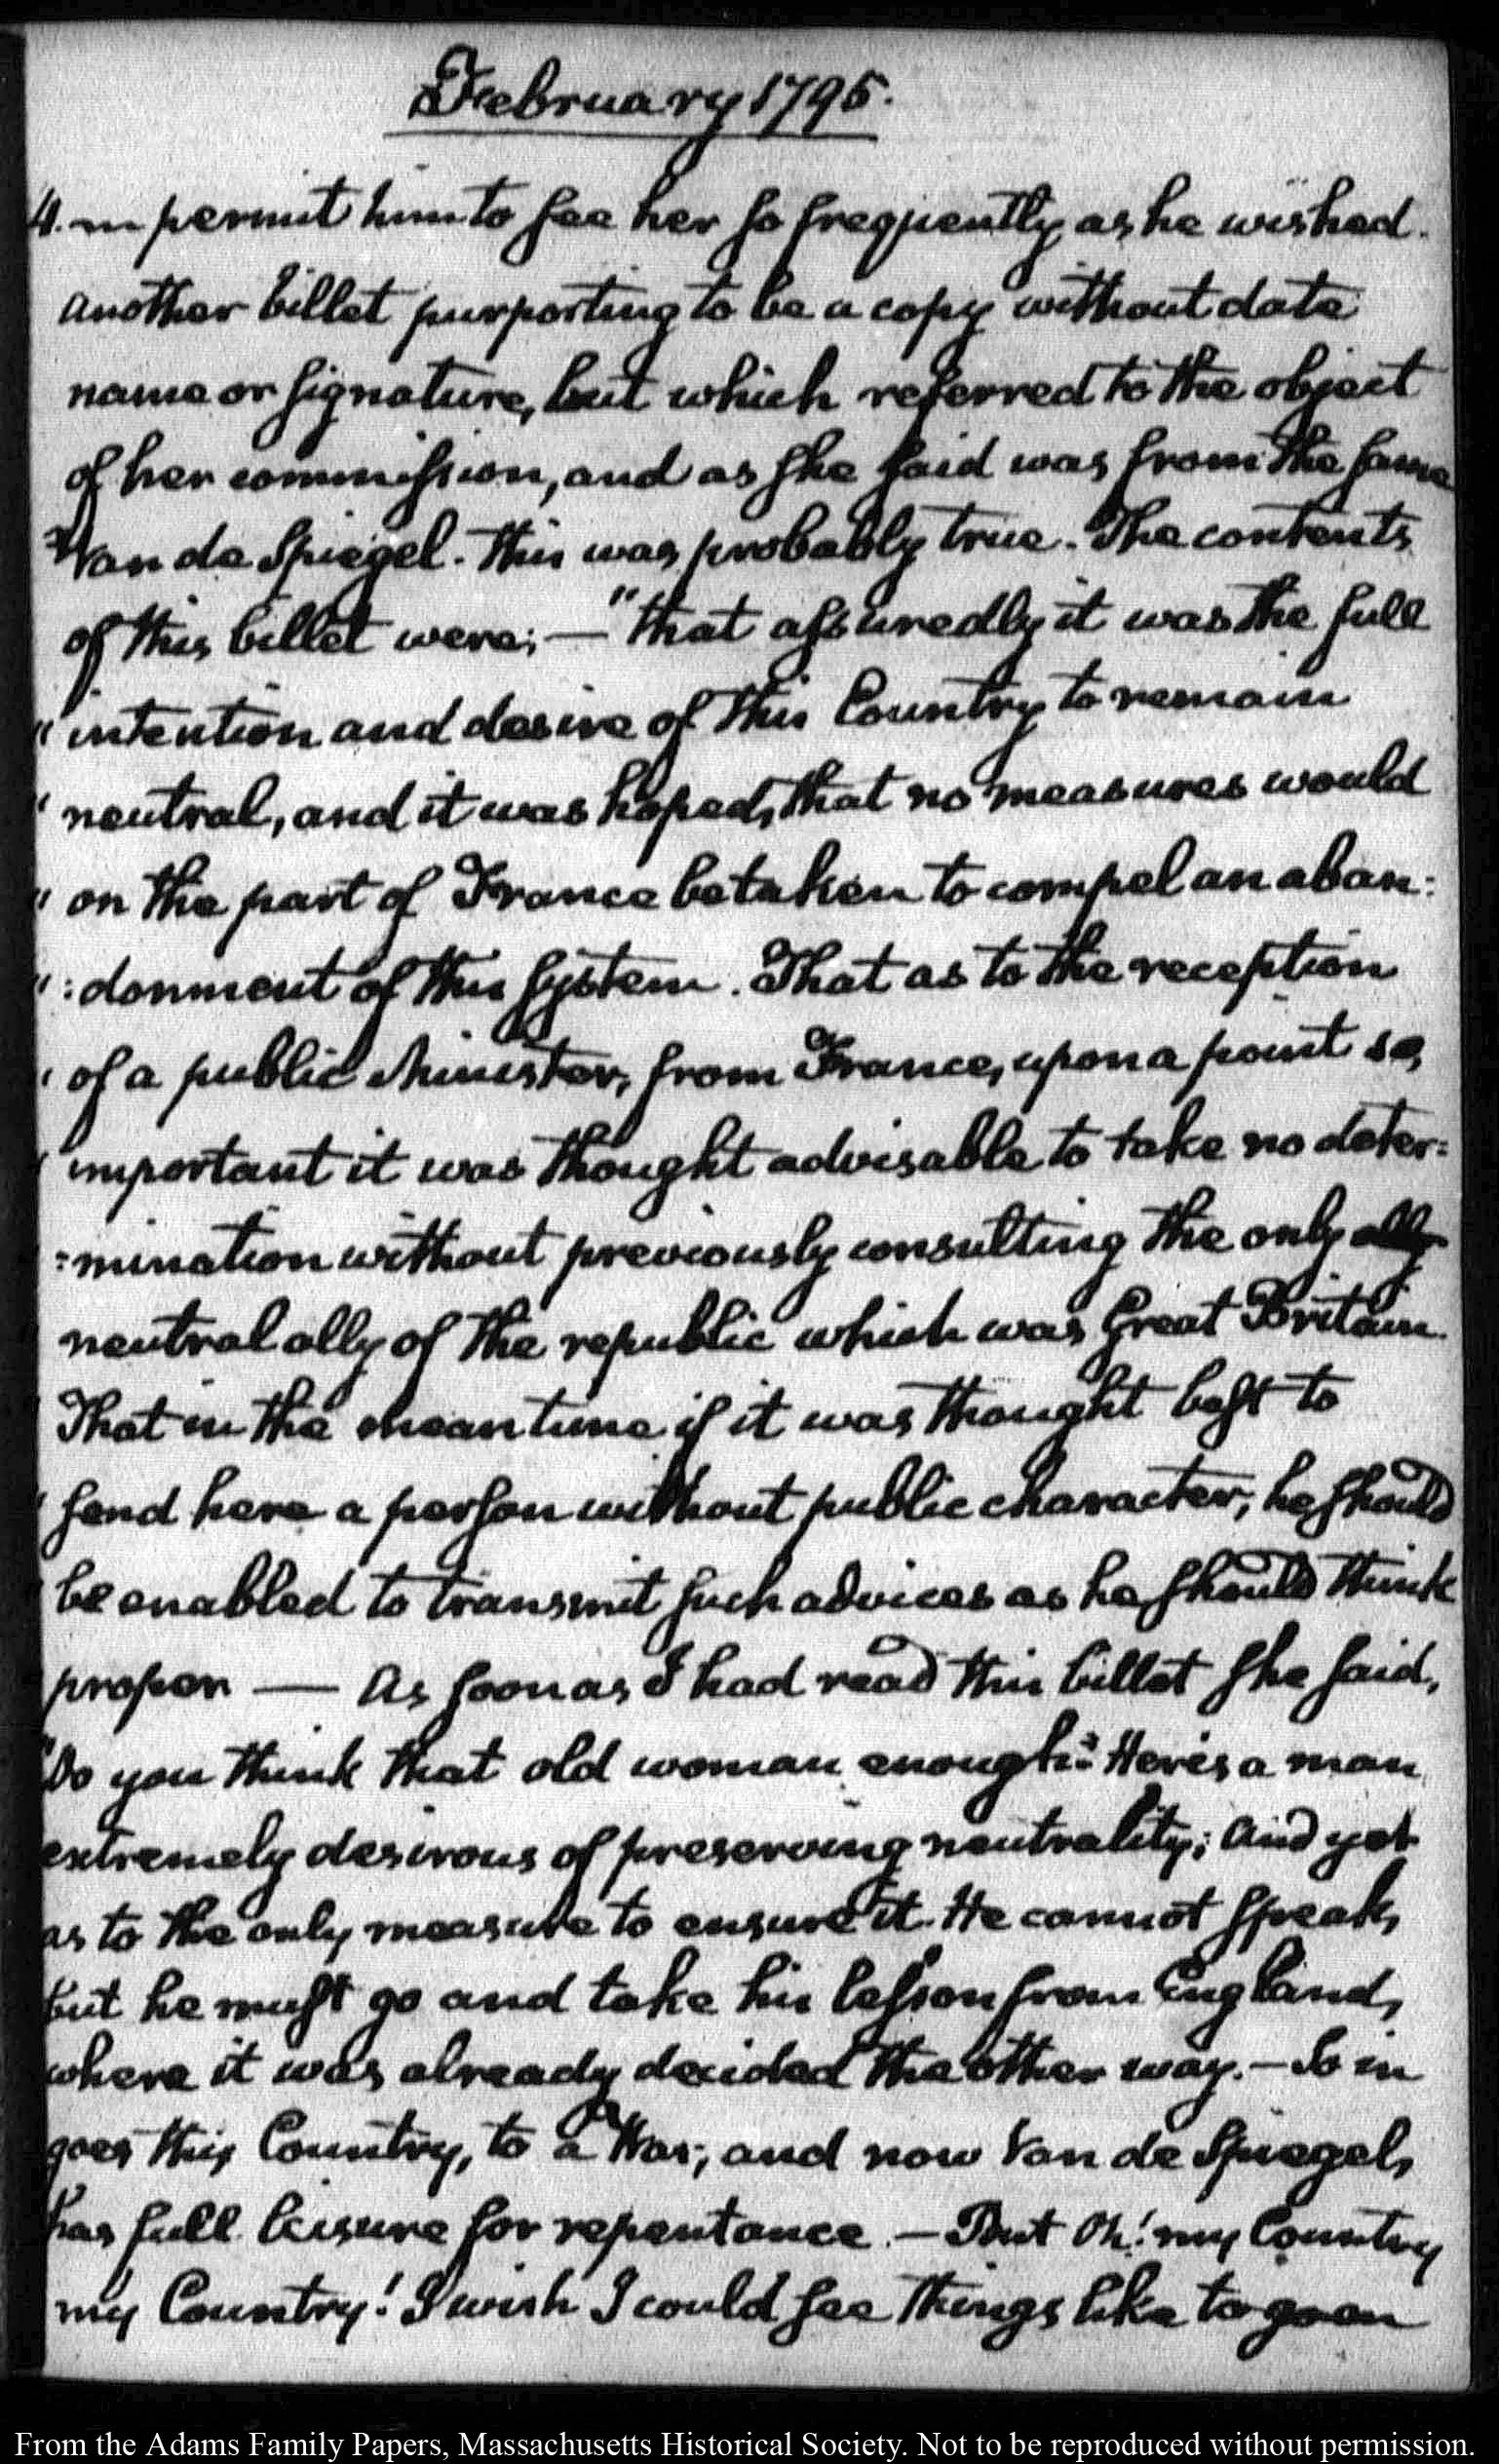 February 1795.
4. m permit him to see her so frequently as he wished.
another billet purporting to be a copy without date
name or signature, but which referred to the object
of her commission, and as she said was from the same
Van de Spiegel. this was probably true. The contents
of this billet were; — "that assuredly it was the full
" intention and desire of this Country to remain
" neutral, and it was hoped, that no measures would
" on the part of France be taken to compel an aban:
" :donment of this system. That as to the reception
" of a public Minister, from France, upon a point so,
" important it was thought advisable to take no deter:
:mination without previously consulting the only ally
neutral ally of the republic which was Great Britain.
That in the meantime if it was thought best to
send here a person without public character, he should
be enabled to transmit such advices as he should think
proper — As soon as I had read this billet she said,
"Do you think that old woman enough? Here's a man
extremely desirous of preserving neutrality; and yet
as to the only measure to ensure it. He cannot speak,
but he must go and take his lesson from England,
where it was already decided the other way. — So in
goes this Country, to a War; and now Van de Spiegel,
has full leisure for repentance. — But Oh! my Country
my Country! I wish I could see things like to go on
From the Adams Family Papers, Massachusetts Historical Society. Not to be reproduced without permission.